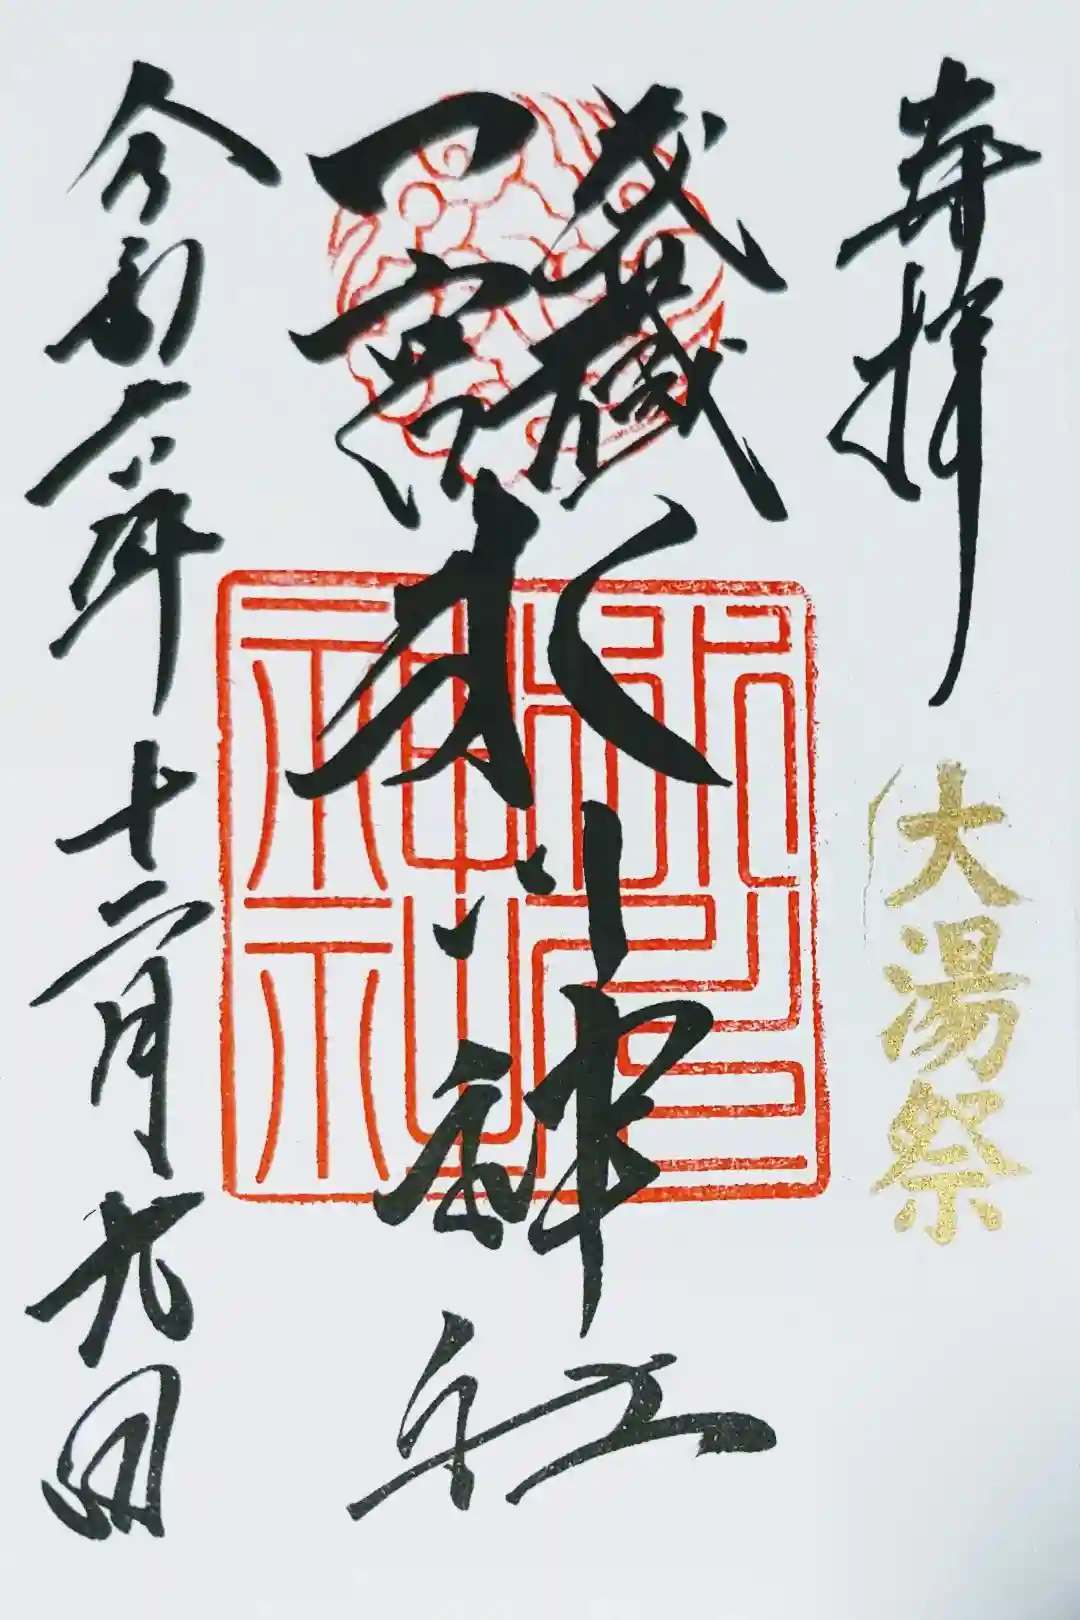 奉拝
大湯祭
武蔵
一宮
氷川神社
令和二年十二月九日